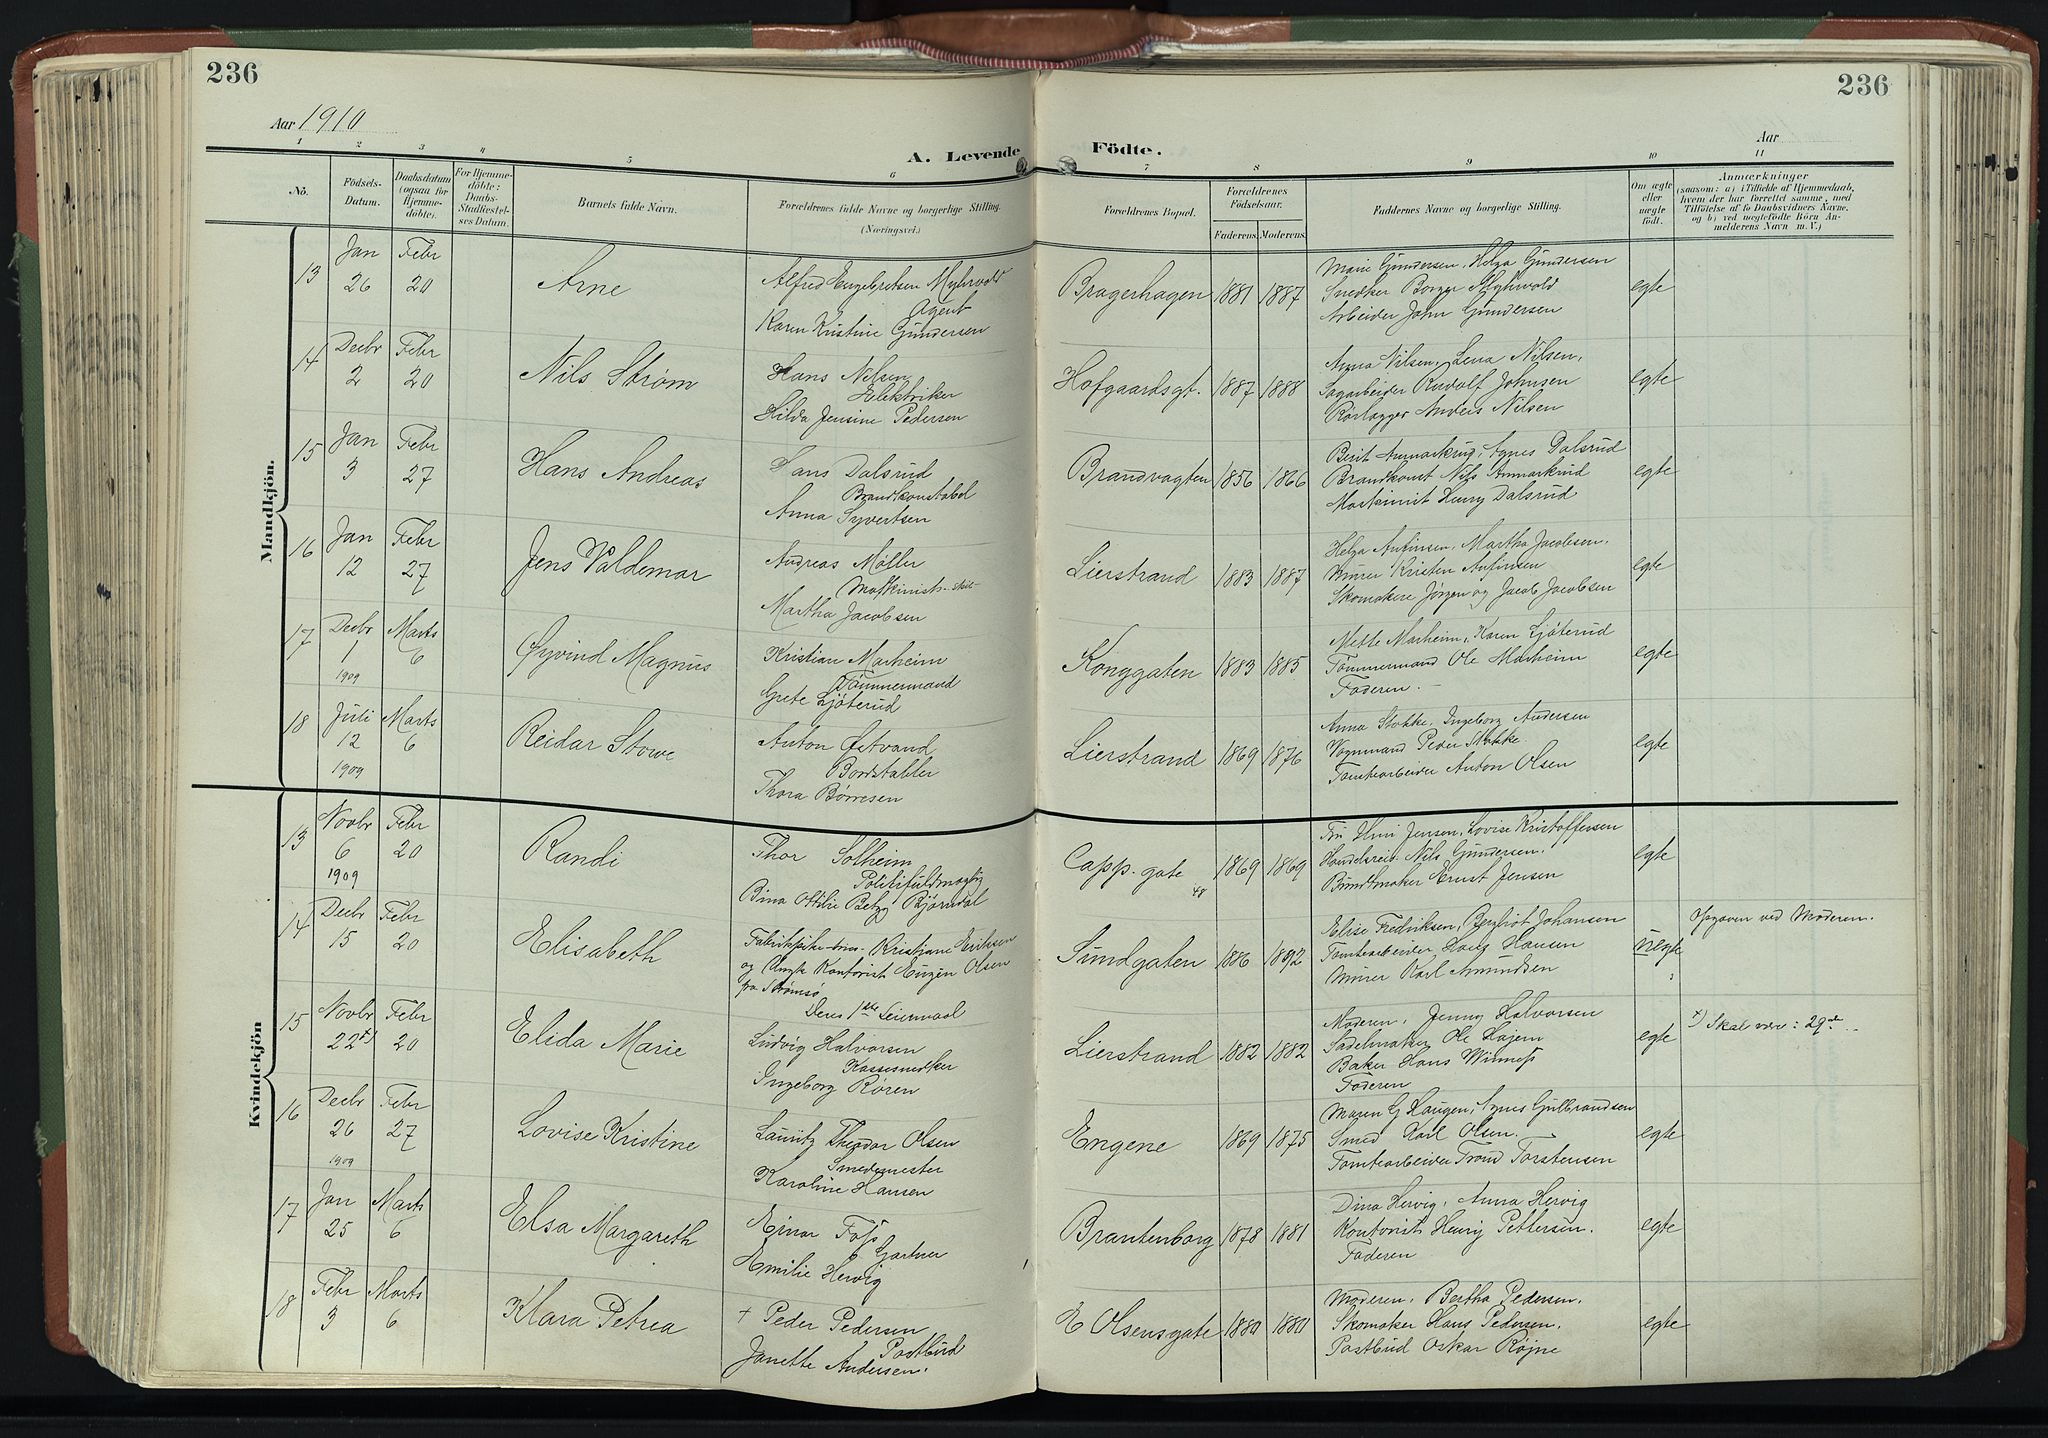 236
236
Aar 1910
Aar
A. Levende Födte.
1 2 3 4 5 6 7 8 9 10 11
Nö.
Födsels-Datum.
Daabsdatum (ogsaa for Hjemme-döbte).
For Hjemme-döbte: Daabs-Stadfæstel-ses Datum.
Barnets fulde Navn.
Forældrenes fulde Navne og borgerlige Stilling.
(Næringsvei.)
Forældrenes Bopæl.
Forældrenes Födselsaar.
Faderens. Moderens.
Faddernes Navne og borgerlige Stilling.
Om ægte eller uægte födt.
Anmærkninger
(saasom: a) i Tilfælde af Hjemmedaab, hvem der har forrettet samme, med Tilföielse af to Daabsvidners Navne, og b) ved uægtefödte Börn An-melderens Navn m. V.)
Mandkjön.
13 Jan 26 Febr 20 Arne
Alfred Engebretsen Myhrvold
Agent
Karen Kristine Gundersen
Bragerhagen 1881 1887
Marie Gundersen, Helga Gundersen
Snedker Borger Myhrvold
Arbeider John Gundersen
egte
14 Decbr 2 Febr 20 Nils Strøm
Hans Nilsen
Elektriker
Hilda Jensine Pedersen
Hofgaardsgt. 1887 1888
Anna Nilsen, Lena Nilsen,
Sagarbeider Rudolf Johnsen
Rørlægger Anders Nilsen
egte
15 Jan 3 Febr 27 Hans Andreas
Hans Dalsrud
Brandkonstabel
Anna Syvertsen
Brandvagten 1856 1866
Berit Anmarkrud, Agnes Dalsrud
Brandkonst Nils Anmarkrud
Maskinist Henry Dalsrud
egte
16 Jan 12 Febr 27 Jens Valdemar
Andreas Møller
Martha Jacobsen
Lierstrand 1883 1887
Helga Anfinsen, Martha Jacobsen,
Murer Kristen Anfinsen
Skomakere Jørgen og Jacob Jacobsen
egte
17 Decbr 1 1909 Marts 6 Øyvind Magnus
Kristian Marheim
Tømmermand
Grete Ljøterud
Konggaten 1883 1885
Mette Marheim, Karen Ljøterud
Tømmermand Ole Marheim
Faderen.
egte
18 Juli 12 1909 Marts 6 Reidar Stowe
Anton Østvand
Bordstabler
Thora Børresen
Lierstrand 1869 1876
Anna Stokke, Ingeborg Andersen
Vognmand Peder Stokke
Tomtearbeider Anton Olsen
egte
Kvindekjön
13 Novbr 6 1909 Febr 20 Randi
Thor Solheim
Politifuldmægtig
Bina Ottilie Betzy Bjørndal
Capp. gate 48 1869 1869
Fru Jensen, Lovise Kristoffersen
Handelsreis. Nils Gundersen,
Bundtmaker Ernst Jensen
egte
14 Decbr 15 Febr 20 Elisabeth
Fabrikpike Kristiane Eriksen
og Ungk Kontorist Eugen Olsen
fra Strømsø
Deres 1ste Leiermaal
Sundgaten 1886 1892
Elise Fredriksen, Bergliot Johansen
Tomtearbeider Hans Hansen
Murer Karl Amundsen
uegte
Opgaven ved Moderen.
15 Novbr 22 x) Febr 20 Elida Marie
Ludvig Halvorsen
Kassesnedker
Ingeborg Røren
Lierstrand 1882 1882
Moderen, Jenny Halvorsen
Sadelmaker Ole Højem
Baker Hans Winness
Faderen
egte
x) Skal være: 29de
16 Decbr 26 1909 Febr 27 Lovise Kristine
Lauritz Theodor Olsen
Smedemester
Karoline Hansen
Engene 1869 1875
Maren G Haugen, Agnes Gulbrandsen
Smed Karl Olsen.
Tomtearbeider Trond Torstensen
egte
17 Jan 25 Marts 6 Elsa Margareth
Einar Foss
Gartner
Emilie Hervig
Brantenborg 1878 1881
Dina Hervig, Anna Hervig
Kontorist Henrij Pettersen.
Faderen
egte
18 Febr 3 Marts 6 Klara Petrea
+ Peder Pedersen
Postbud
Janette Andersen.
E Olsensgate 1880 1880
Moderen, Bertha Pedersen,
Skomaker Hans Pedersen,
Postbud Oskar Røjne
egte